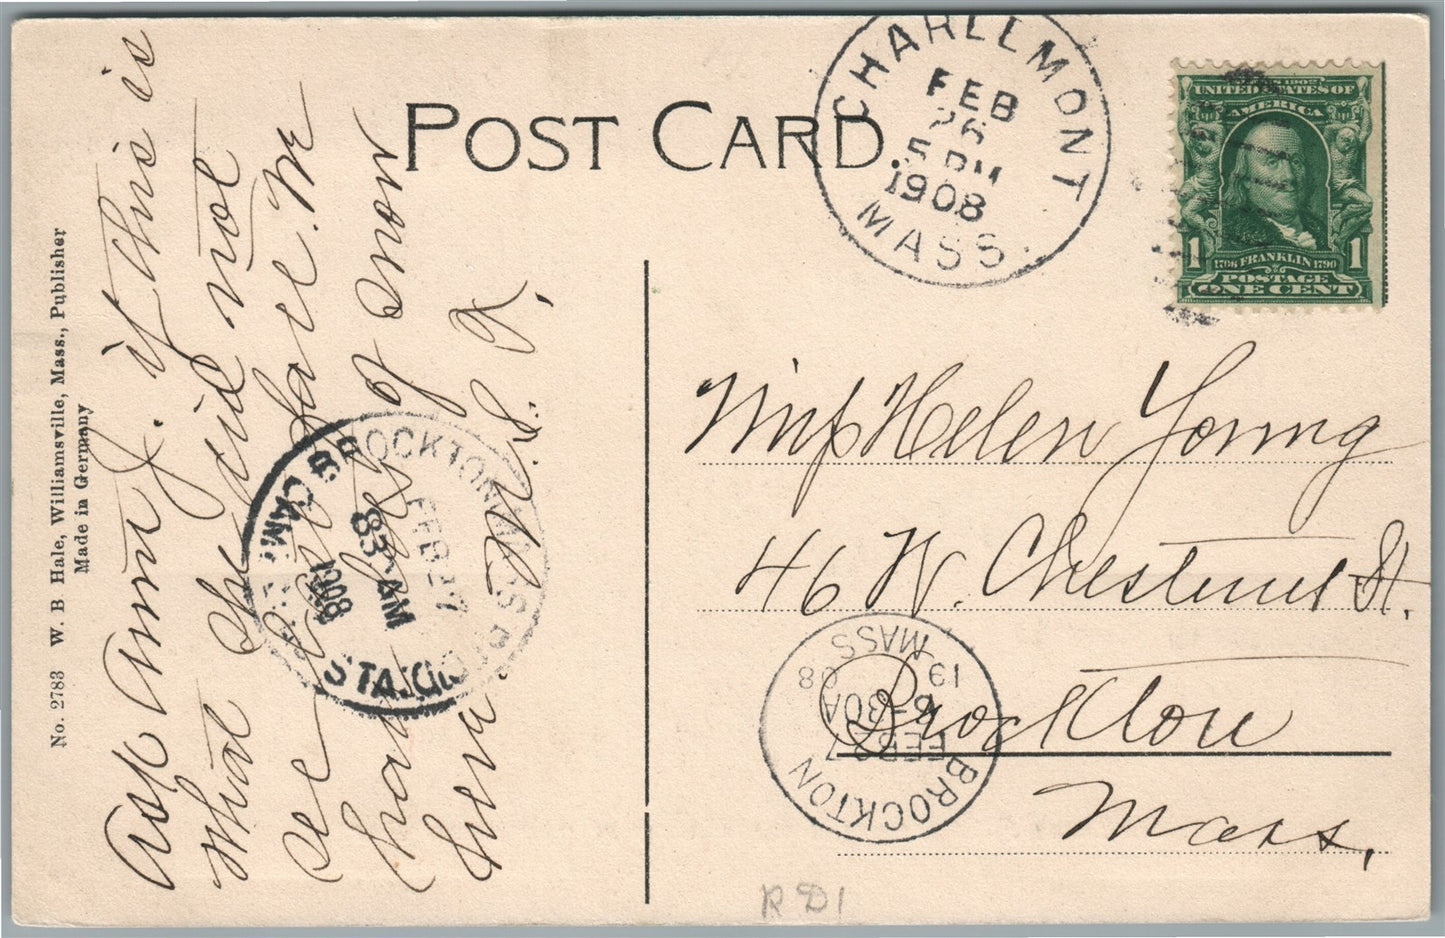 POST CARD.
CHARLEMONT
FEB
26
5 PM
1908
MASS.
UNITED STATES OF
AMERICA
1 1
1706 FRANKLIN 1790
POSTAGE
ONE CENT
No. 2783 W. B Hale, Williamsville, Mass., Publisher
Made in Germany
Ask Anna J. if this is
what she did not
see last fall. We
have of snow
here
M. L. J.
BROCKTON MASS
FEB 27
83- AM
1908
STA.
Miss Helen Young
46 W. Chestnut St.
Brockton
Mass.
BROCKTON
FEB 27
6-30A
19 08
MASS
R D 1